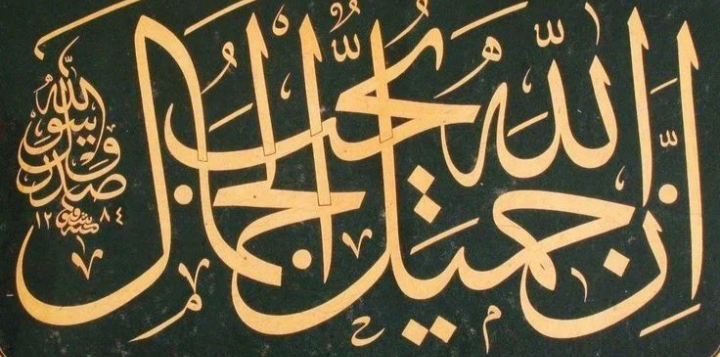 اِنَّ اللّٰه جميل يُحبُّ الجمال
صدق رسول الله
١٢٨٤